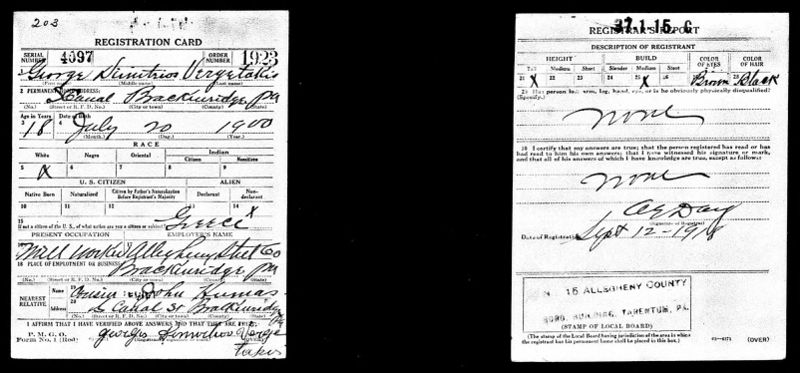 203
REGISTRATION CARD
SERIAL NUMBER 4097 ORDER NUMBER 1923
George Dimitrios Vergetakis
(First name) (Middle name) (Last name)
2 PERMANENT HOME ADDRESS:
Canal Brackenridge Pa
(No.) (Street or R. F. D. No.) (City or town) (County) (State)
Age in Years Date of Birth
3 18 4 July 20 1900
(Month.) (Day.) (Year.)
RACE
White Negro Oriental Indian
Citizen Noncitizen
5 x 6 7 8 9
U. S. CITIZEN ALIEN
Native Born Naturalized Citizen by Father's Naturalization Before Registrant's Majority Declarant Non-declarant
10 11 12 13 14 x
15 If not a citizen of the U. S., of what nation are you a citizen or subject? Greece
PRESENT OCCUPATION EMPLOYER'S NAME
16 Mill worker Allegheny Steel Co
18 PLACE OF EMPLOYMENT OR BUSINESS:
Brackenridge Pa
(No.) (Street or R. F. D. No.) (City or town) (County) (State)
NEAREST RELATIVE
Name 19 Cousin John
Address 20 Canal St Brackenridge Pa
(No.) (Street or R. F. D. No.) (City or town) (County) (State)
I AFFIRM THAT I HAVE VERIFIED ABOVE ANSWERS AND THAT THEY ARE TRUE
P. M. G. O.
Form No. 1 (Red)
George Verge
takis
37-1-15. C
REGISTRAR'S REPORT
DESCRIPTION OF REGISTRANT
HEIGHT BUILD COLOR OF EYES COLOR OF HAIR
Tall Medium Short Slender Medium Stout
21 x 22 23 24 25 x 26 27 Brown 28 Black
29 Has person lost arm, leg, hand, eye, or is he obviously physically disqualified?
(Specify.)
None
30 I certify that my answers are true; that the person registered has read or has
had read to him his own answers; that I have witnessed his signature or mark,
and that all of his answers of which I have knowledge are true, except as follows:
None
(Signature of Registrar)
Date of Registration Sept 12-1918
15 ALLEGHENY COUNTY
TARENTUM, PA.
(STAMP OF LOCAL BOARD)
(The stamp of the Local Board having jurisdiction of the area in which
the registrant has his permanent home shall be placed in this box.)
(OVER)